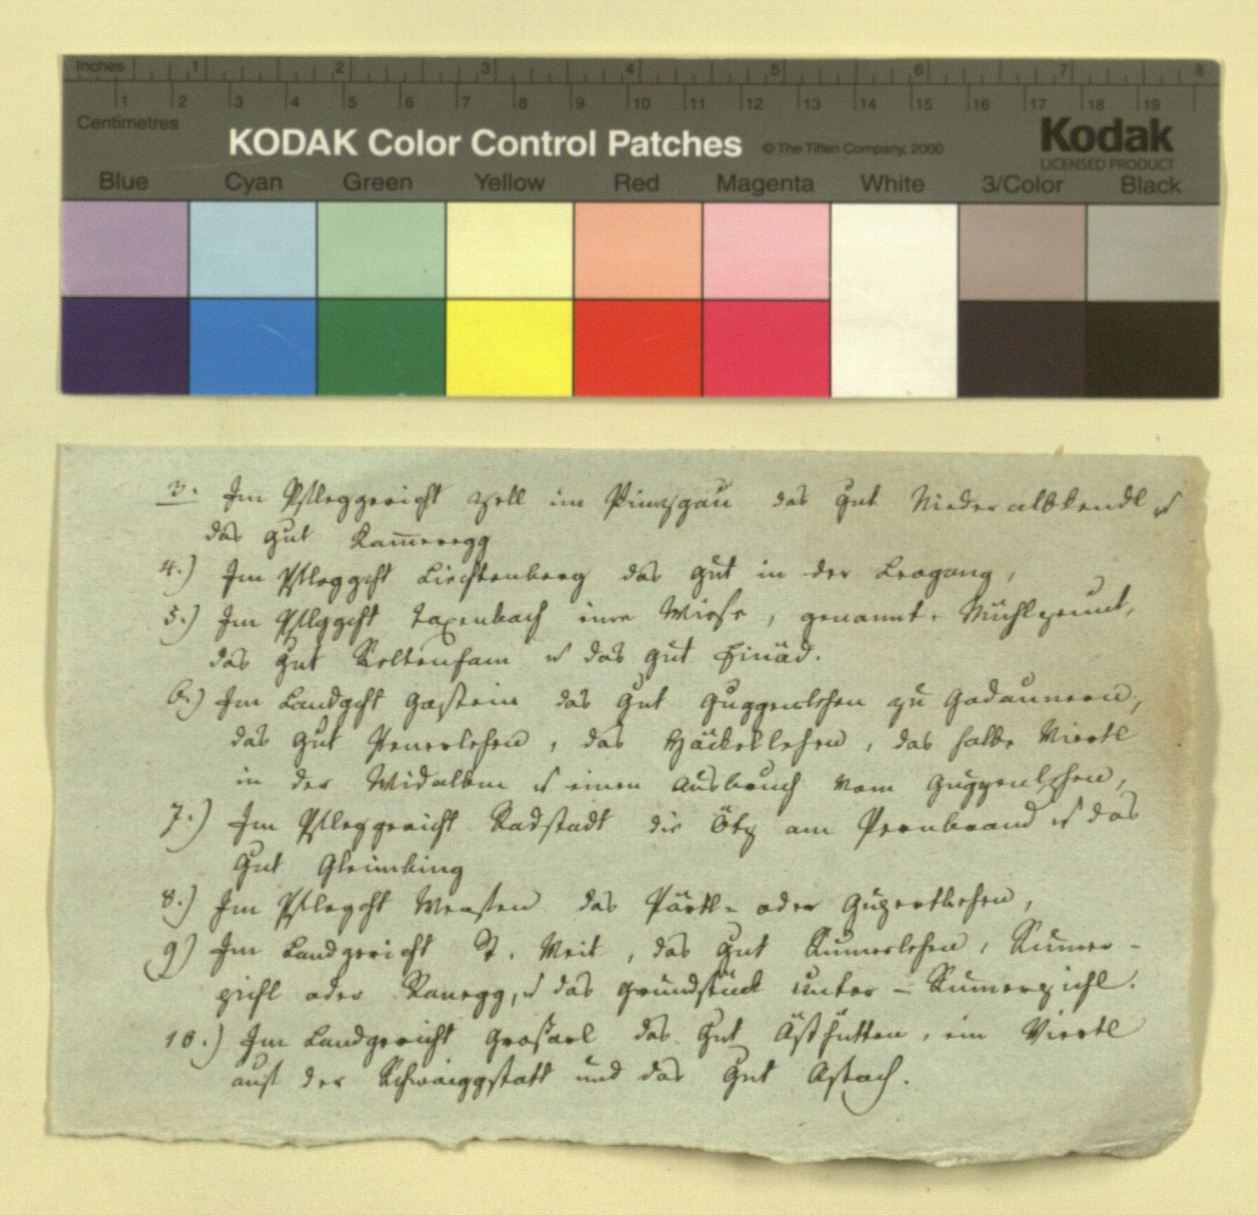 Inches 1 2 3 4 5 6 7 8
1 2 3 4 5 6 7 8 9 10 11 12 13 14 15 16 17 18 19
Centimetres
KODAK Color Control Patches © The Tiffen Company, 2000 Kodak
LICENSED PRODUCT
Blue Cyan Green Yellow Red Magenta White 3/Color Black
3. Im Pfleggericht Zell im Pinzgau das Gut Niederalbkendl u
das Gut Kam̄eregg
4.) Im Pfleggcht Liechtenberg das Gut in der Leogang,
5.) Im Pflggcht Taxenbach eine Wiese, genannt: Mühlpeunt,
das Gut u das Gut Einäd.
6.) Im Landgcht Gastein das Gut Guggenlehen zu Gadaunern,
das Gut Penerlehen, das Häckellehen, das halbe Viertl
in der Widalbm u einen Ausbruch vom Guggenlehen,
7.) Im Pfleggericht Radstadt die Ötz am Pernbrand u das
Gut Gleimling
8.) Im Pfleggcht Werffen das Pärtl- oder
9) Im Landgericht St. Veit, das Gut Rumerlehen, Rumer-
pichl oder Ranegg, u das Grundstück unter-Rumerpichl.
10.) Im Landgericht Großarl das Gut Ästhütten, ein Viertl
aus der Schwaiggstatt und das Gut Aschach.